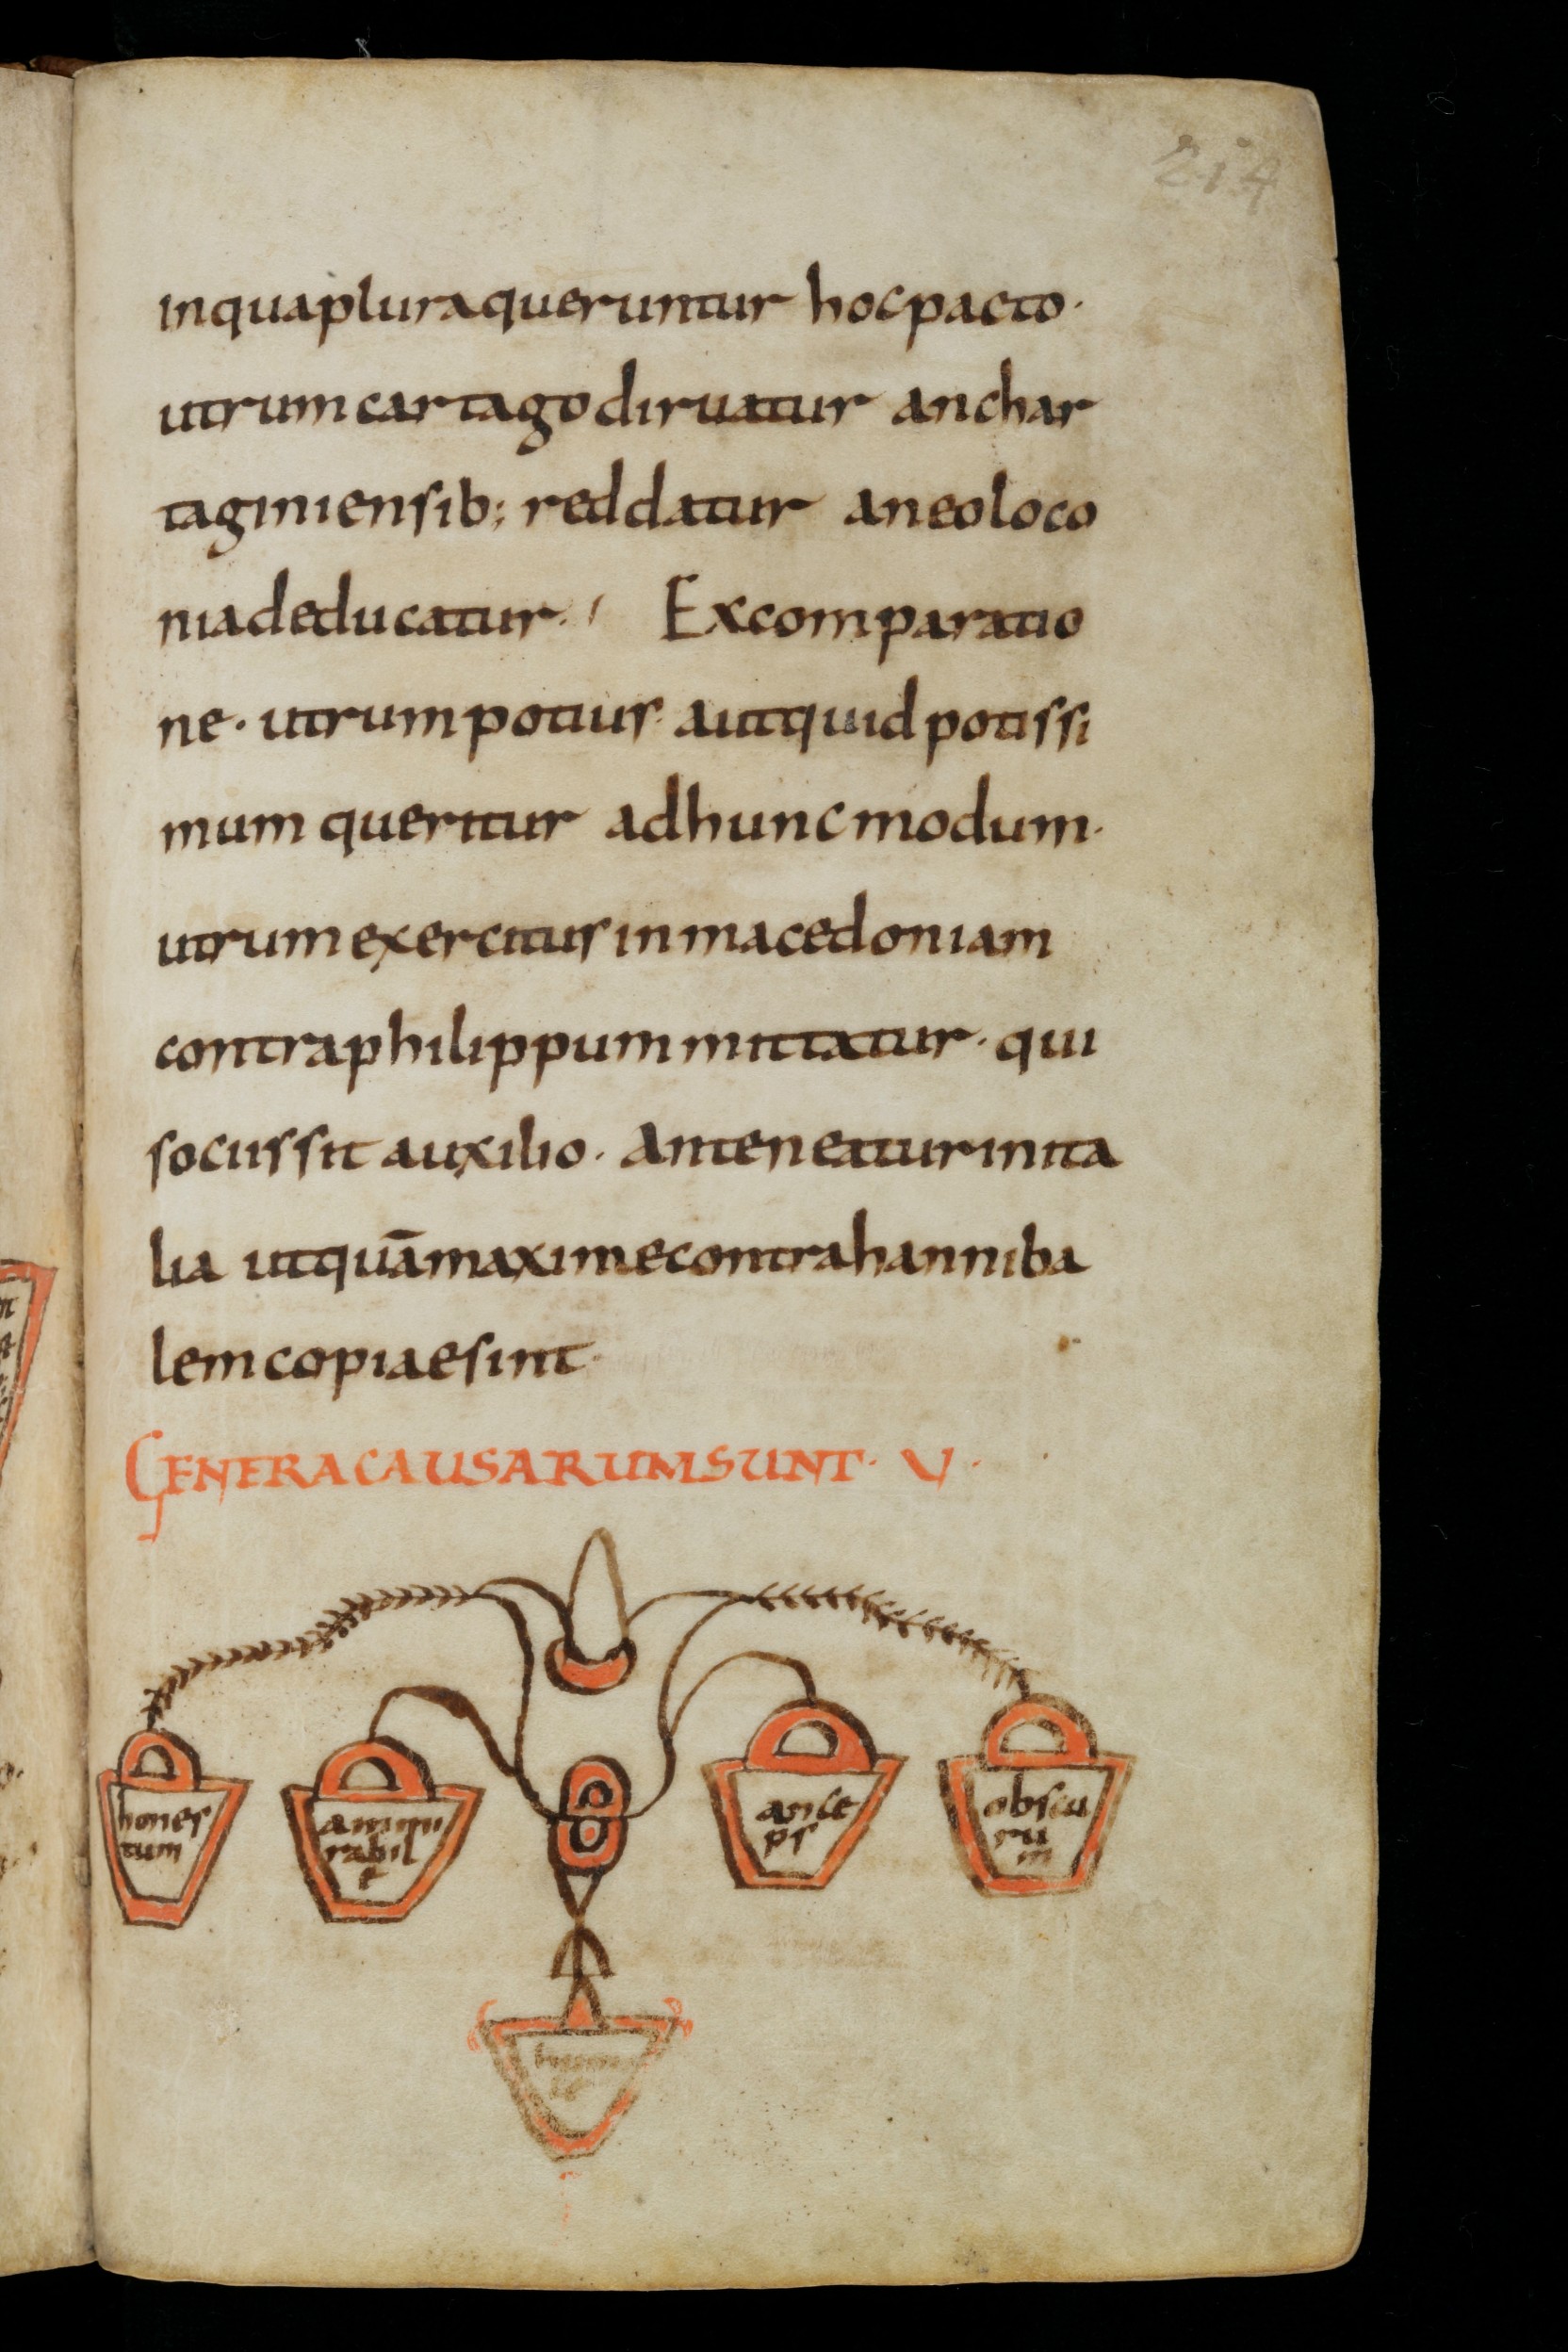 214
inqua plura queruntur hoc pacto·
utrum cartago diruatur an char
taginiensib; reddatur an eo loco
nia deducatur· Ex comparatio
ne· utrum potius· aut quid potissi
mum queritur ad hunc modum·
utrum exercitus in macedoniam
contra philippum mittatur· qui
sociis sit auxilio· an teneatur in ita
lia ut quā maxime contra hanniba
lem copiae sint·
GENERA CAUSARUM SUNT· V·
hones
tum
ammi
rabil
e
ance
ps
obscu
ru
m